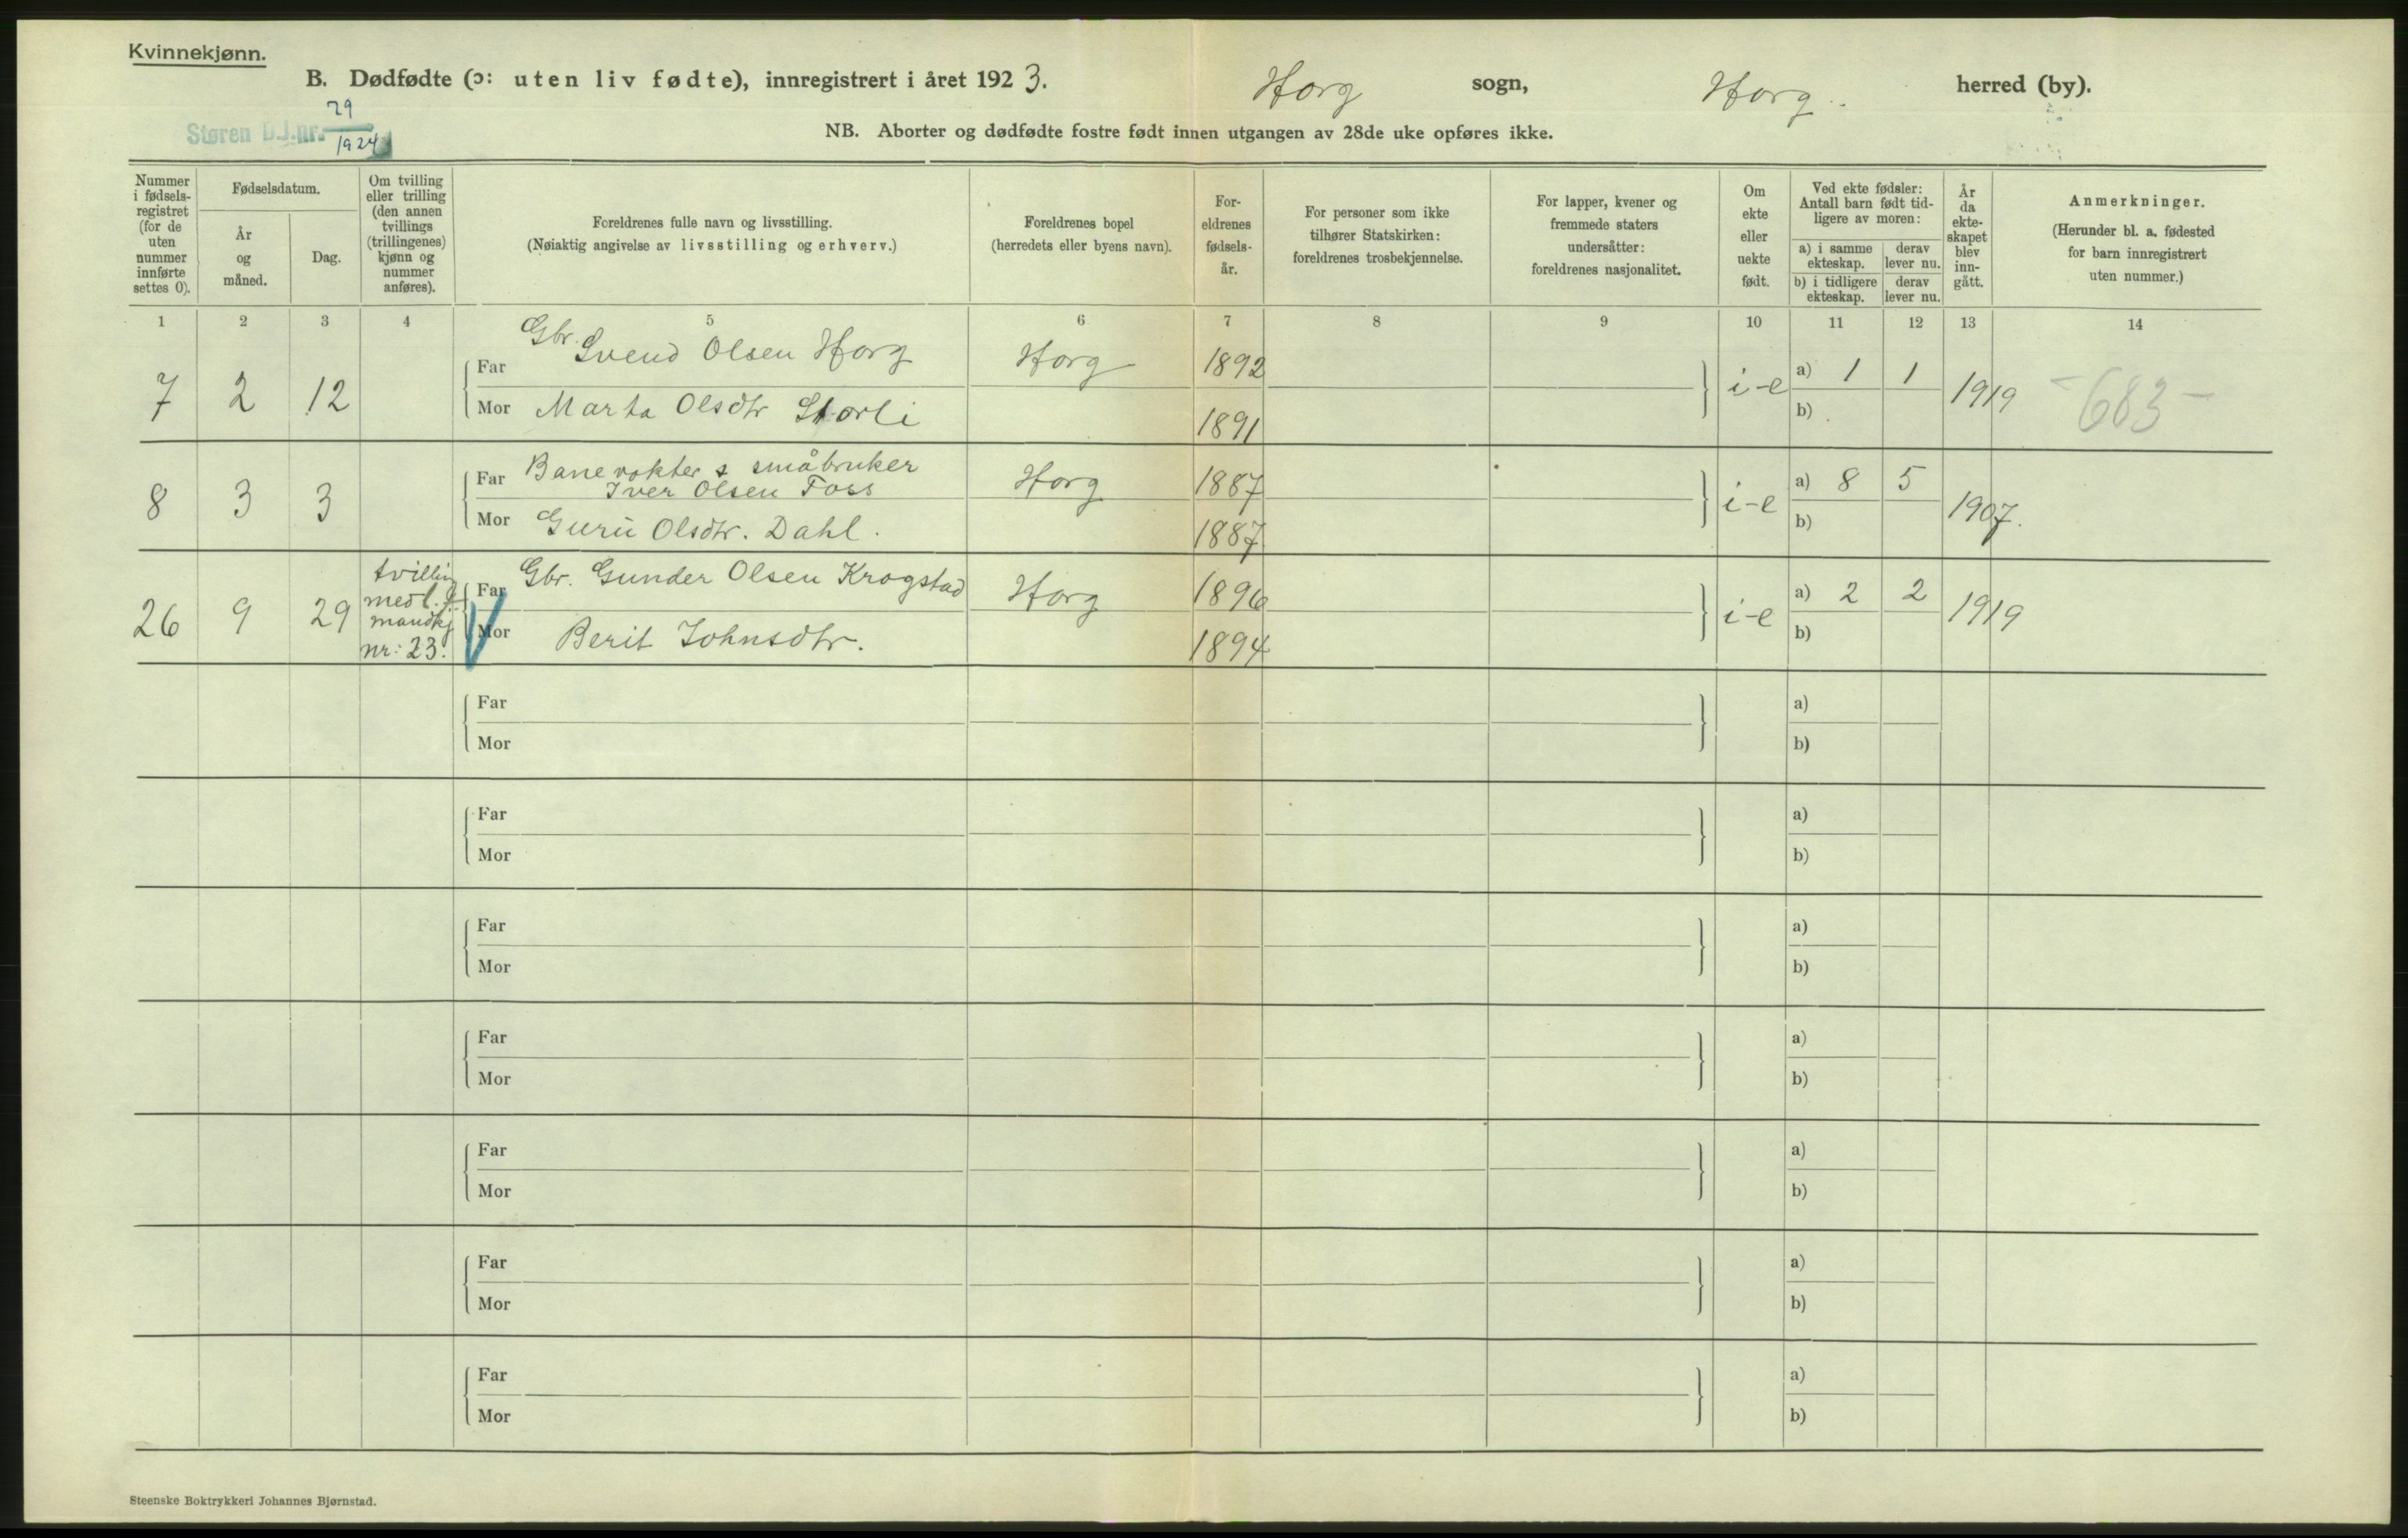 Kvinnekjønn.
B. Dødfødte (ɔ: uten liv fødte), innregistrert i året 1923. Horg sogn, Horg herred (by).
Støren D.J.nr. 29/1924
NB. Aborter og dødfødte fostre født innen utgangen av 28de uke opføres ikke.
Nummer
i fødsels-
registret
(for de
uten
nummer
innførte
settes 0).
Fødselsdatum.
År
og
måned.
Dag.
Om tvilling
eller trilling
(den annen
tvillings
(trillingenes)
kjønn og
nummer
anføres).
Foreldrenes fulle navn og livsstilling.
(Nøiaktig angivelse av livsstilling og erhverv.)
Foreldrenes bopel
(herredets eller byens navn).
For-
eldrenes
fødsels-
år.
For personer som ikke
tilhører Statskirken:
foreldrenes trosbekjennelse.
For lapper, kvener og
fremmede staters
undersåtter:
foreldrenes nasjonalitet.
Om
ekte
eller
uekte
født.
Ved ekte fødsler:
Antall barn født tid-
ligere av moren:
a) i samme
ekteskap.
derav
lever nu.
b) i tidligere
ekteskap.
derav
lever nu.
År
da
ekte-
skapet
blev
inn-
gått.
Anmerkninger.
(Herunder bl. a. fødested
for barn innregistrert
uten nummer.)
1 2 3 4 5 6 7 8 9 10 11 12 13 14
7 2 12 Far Gbr. Svend Olsen Horg Horg 1892 i-e a) 1 1 1919 -683-
Mor Marta Olsdtr Storli 1891 b)
8 3 3 Far Banevokter & småbruker
Iver Olsen Foss Horg 1887 i-e a) 8 5 1907.
Mor Guru Olsdtr. Dahl. 1887 b)
26 9 29 tvilling
med l. f
mandkj
nr: 23.
Far Gbr. Gunder Olsen Krogstad Horg 1896 i-e a) 2 2 1919
Mor Berit Johnsdtr. 1894 b)
Far a)
Mor b)
Far a)
Mor b)
Far a)
Mor b)
Far a)
Mor b)
Far a)
Mor b)
Far a)
Mor b)
Far a)
Mor b)
Steenske Boktrykkeri Johannes Bjørnstad.